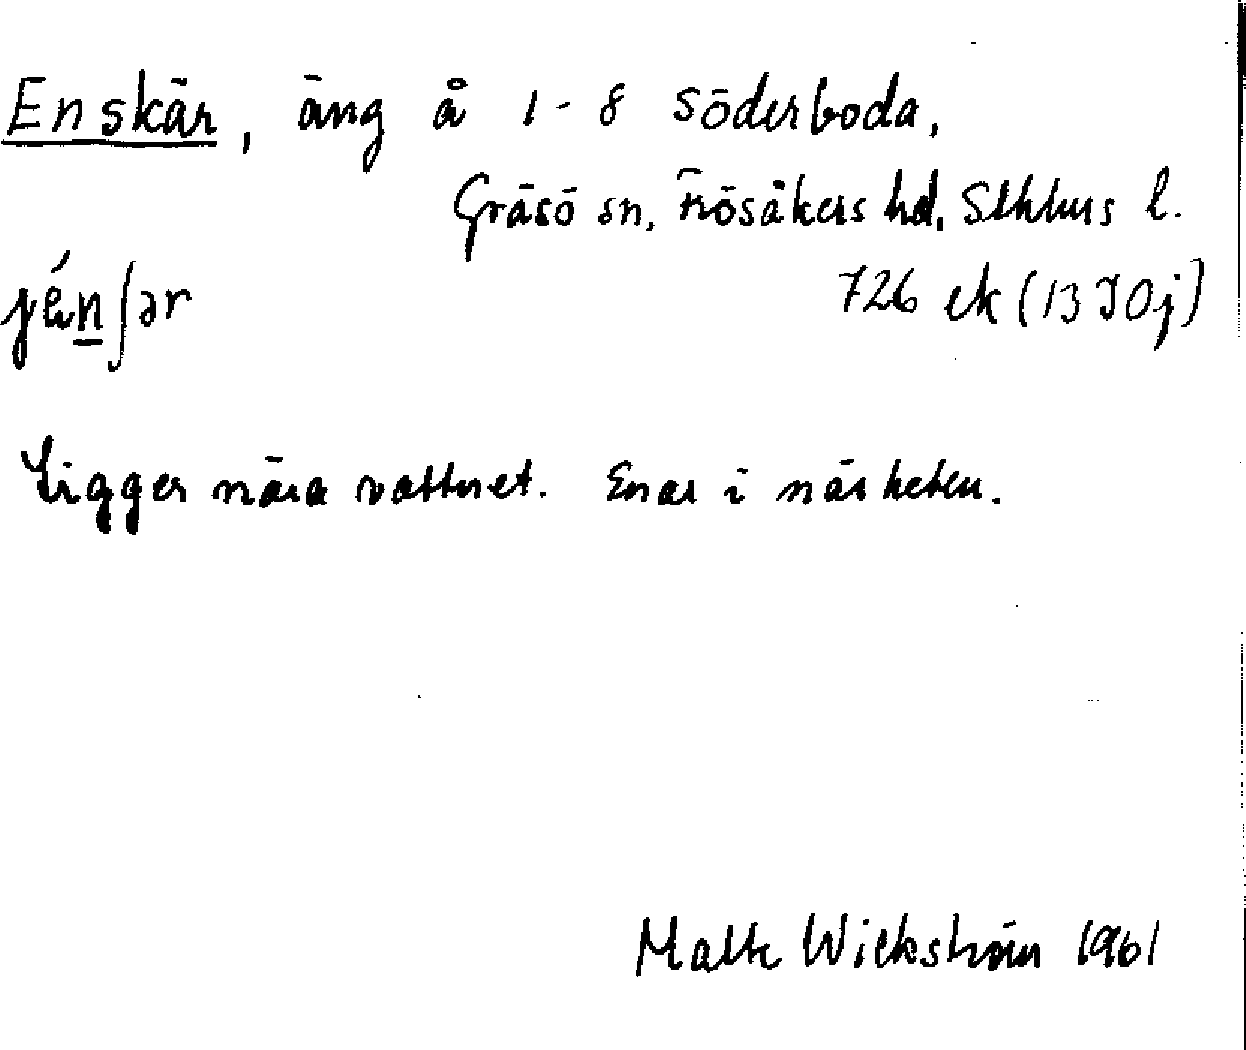 Enskär, äng å 1-8 Söderboda,
Gräsö sn, Frösåkers hd, Sthlms l.
726 ek (13 I 0j)
Ligger nära vattnet. Enar i närheten.
Wickström 1961